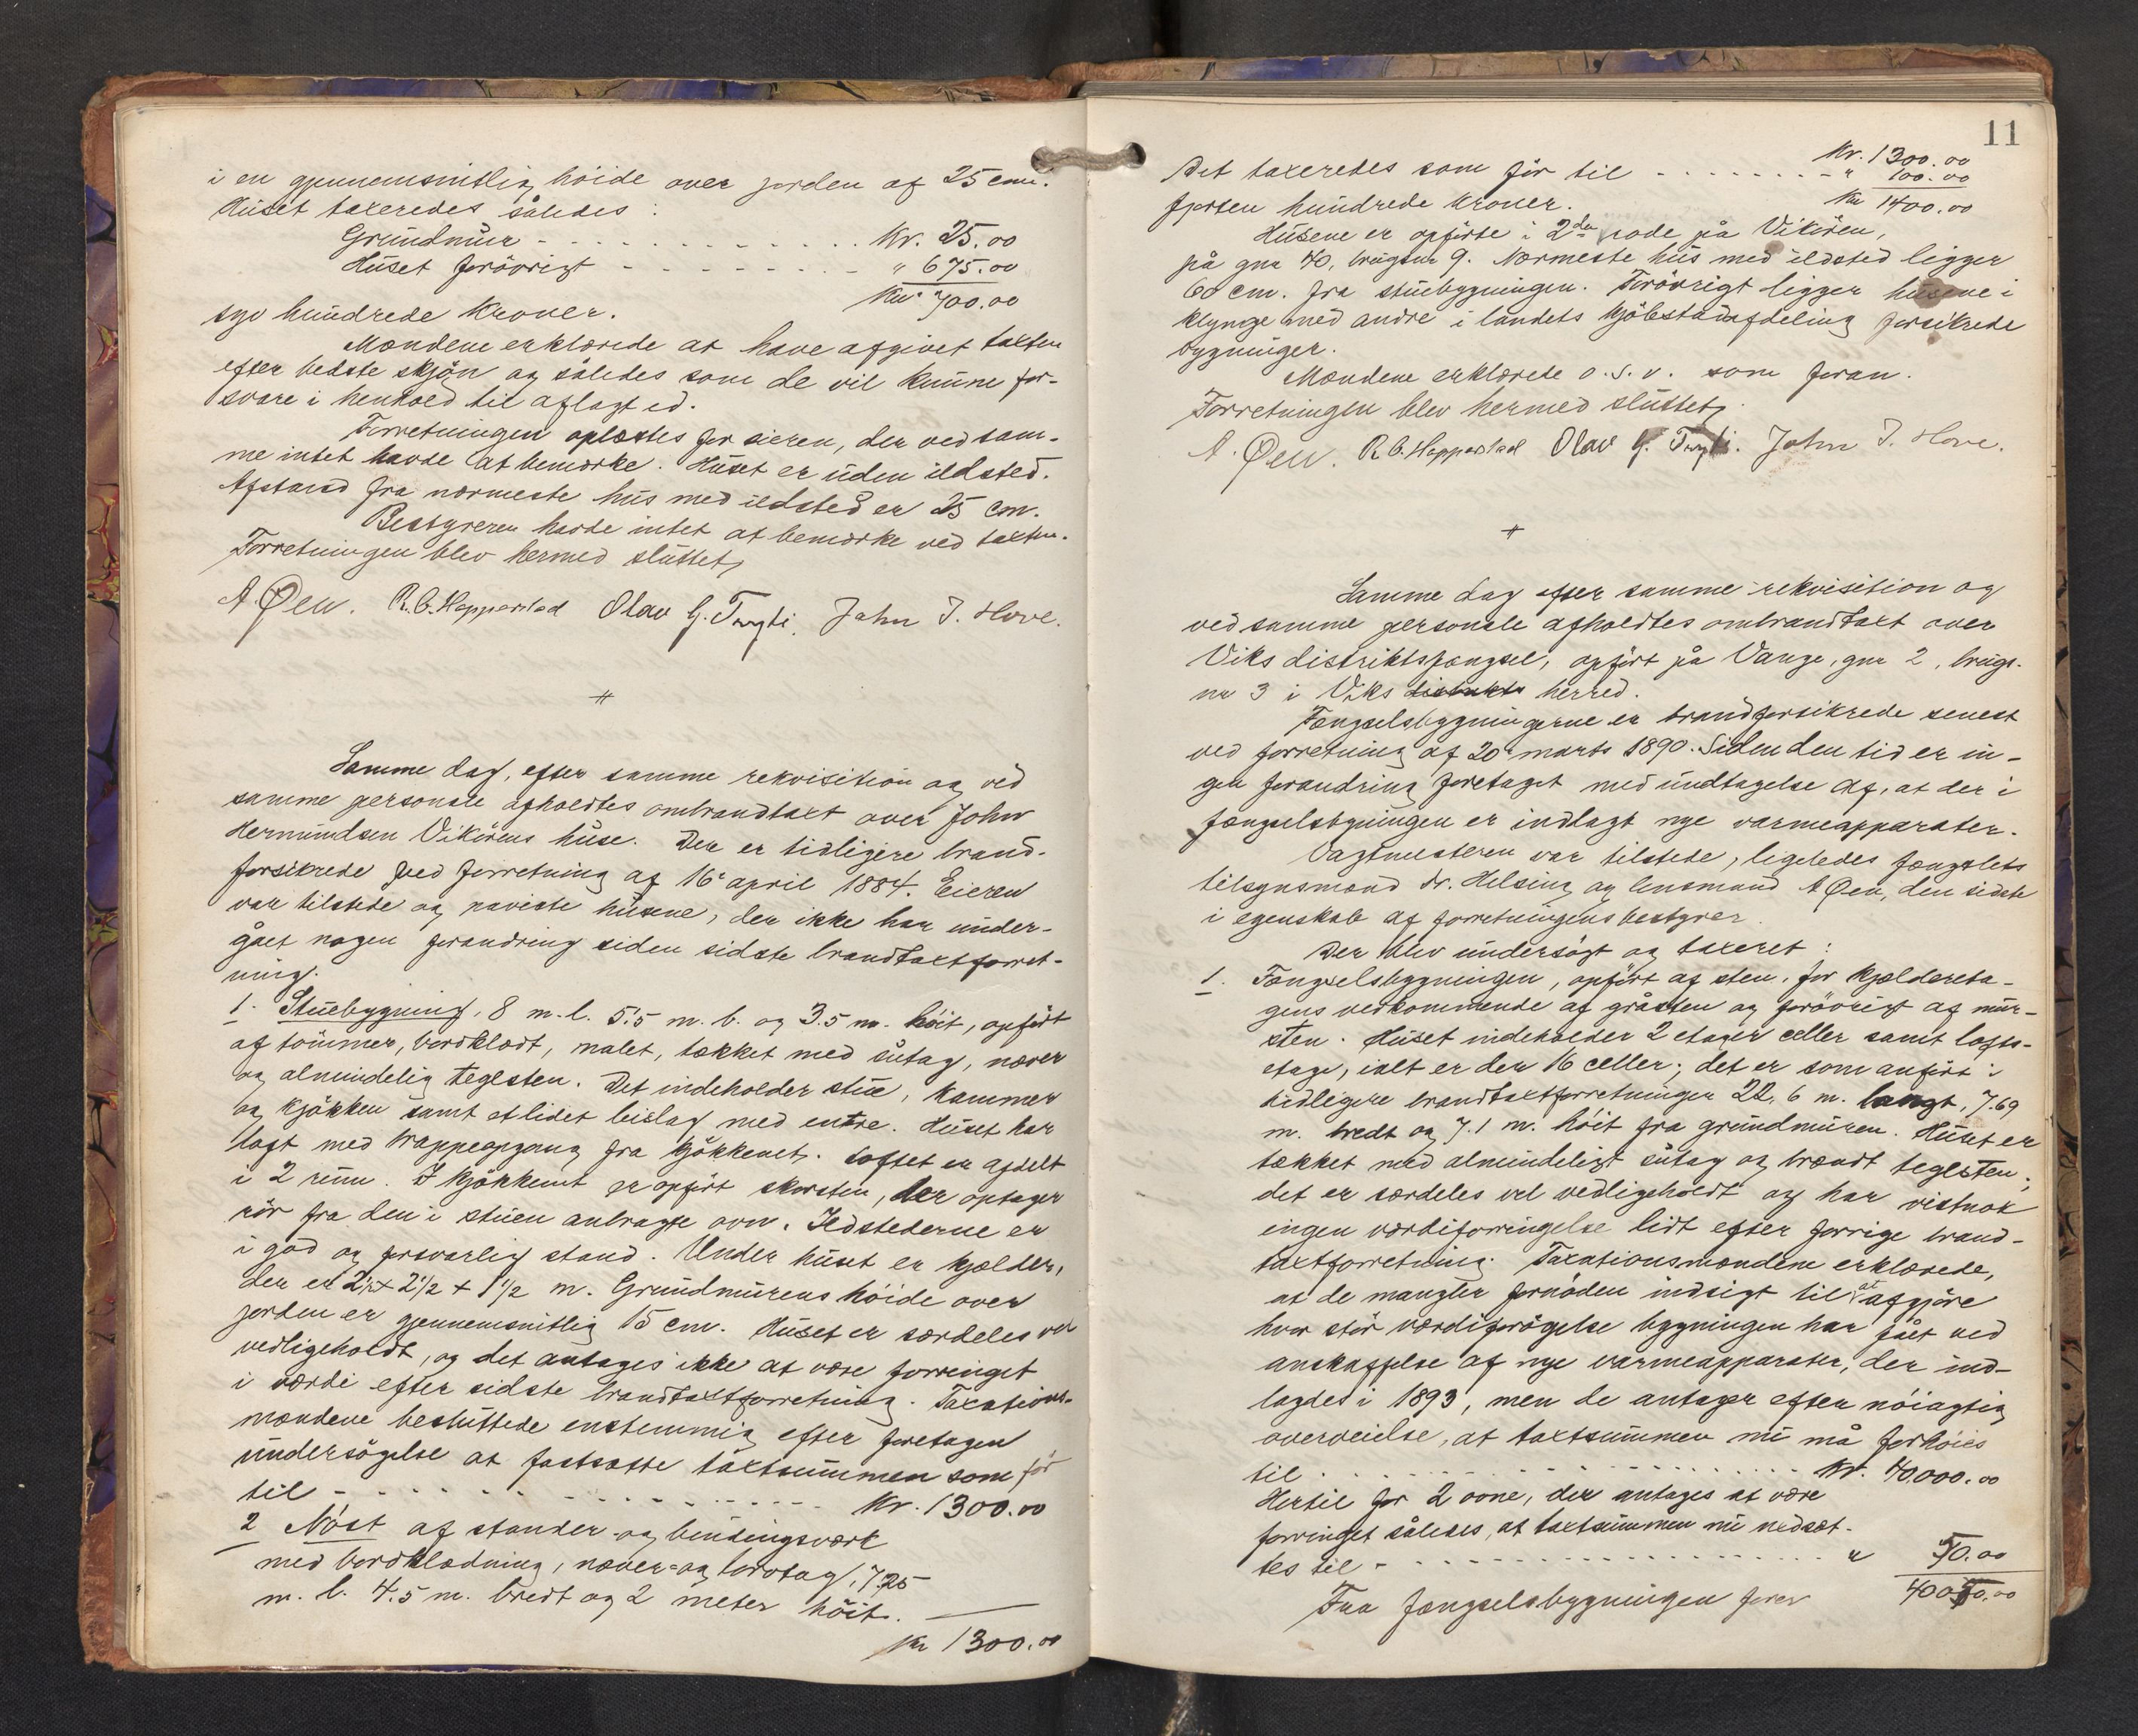 i en gjennemsnitlig höide over jorden af 25 cm.
Huset taxeredes således:
Grundmur - - - - - - - - - - Kr. 25.00
Huset forövrigt - - - - - - - - - " 675.00
Kr. 700.00
syv hundrede kroner.
Mændene erklærede at have afgivet taxten
efter bedste skjön og således som de vil kunne for-
svare i henhold til aflagt ed.
Forretningen oplæstes for eieren, der ved sam-
me intet havde at bemærke. Huset er uden ildsted.
Afstand fra nærmeste hus med ildsted er 25 cm.
Bestyreren havde intet at bemærke ved taxten.
Forretningen blev hermed sluttet,
A. Øen. R. O. Hopperstad Olav G. Tryti. John J. Hove.
#
Samme dag, efter samme rekvisition og ved
samme personale afholdtes ombrandtaxt over John
Hermundsen Vikörens huse. Der er tidligere brand-
forsikrede ved forretning af 16de april 1884. Eieren
var tilstede og paaviste husene, der ikke har under-
gået nogen forandring siden sidste brandtaxtforret-
ning.
1. Stuebygning, 8 m. l. 5.5 m. b. og 3.5 m. höit, opfört
af tömmer, bordklædt, malet, tækket med sutag, næver
og almindelig teglsten. Det indeholder stue, kammer
og kjökken samt et lidet bislag med entre. Huset har
loft med trappeopgang fra kjökkenet. Loftet er afdelt
i 2 rum. I kjökkenet er opfört skorsten, der optager
rör fra den i stuen anbragte ovn. Ildstederne er
i god og forsvarlig stand. Under huset er kjelder,
der er 2½ + 2½ + 1½ m. Grundmurens höide over
jorden er gjennemsnitlig 15 cm. Huset er særdeles vel
vedligeholdt, og det antages ikke at være forringet
i værdi efter sidste brandtaxtforretning. Taxations-
mændene besluttede enstemmig efter foretagen
undersögelse at fastsætte taxtsummen som för
til - - - - - - - - - - - - - - Kr. 1300.00
2 Nöst af stander- og bindingsværk
med bordklædning, næver- og torvtag, 7.25
m. l. 4.5 m. bredt og 2 meter höit.
Kr 1300.00
11
Det taxeredes som för til - - - - - - - - Kr. 1300.00
" 100.00
fjorten hundrede kroner. Kr 1400.00
Husene er opförte i 2den rode på Vikören,
på gnr 40, brugsnr 9. Nærmeste hus med ildsted ligger
60 cm. fra stuebygningen. Forövrigt ligger husene i
klynge med andre i landets kjöbstadsafdeling forsikrede
bygninger.
Mændene erklærede o. s. v. som foran.
Forretningen blev hermed sluttet,
A. Øen. R. O. Hopperstad Olav G. Tryti. John J. Hove.
#
Samme dag efter samme rekvisition og
ved samme personale afholdtes ombrandtaxt over
Viks distriktsfængsel, opfört på Vange, gnr 2, brugs-
nr 3 i Viks distrikts herred.
Fængselsbygningerne er brandforsikrede senest
ved forretning af 20de marts 1890. Siden den tid er in-
gen forandring foretaget med undtagelse af, at der i
fængselsbygningen er indlagt nye varmeapparater.
Vagtmesteren var tilstede, ligeledes fængslets
tilsynsmand dr. Helsing og lensmand A Øen, den sidste
i egenskab af forretningens bestyrer.
Der blev undersögt og taxeret:
1. Fængselsbygningen, opfört af sten, for kjeldereta-
gens vedkommende af gråsten og forövrigt af mur-
sten. Huset indeholder 2 etager celler samt lofts-
etage, ialt er der 16 celler; det er som anfört i
tidligere brandtaxtforretninger 22,6 m. langt, 7.69
m. bredt og 7.1 m. höit fra grundmuren. Huset er
tækket med almindeligt sutag og brændt teglsten;
det er særdeles vel vedligeholdt og har vistnok
ingen værdiforringelse lidt efter forrige brand-
taxtforretning. Taxationsmændene erklærede,
at de mangler fornöden indsigt til at afgjöre
hvor stör værdiforögelse bygningen har fået ved
anskaffelse af nye varmeapparater, der ind-
lagdes i 1893, men de antager efter nöiagtig
overveielse, at taxtsummen nu må forhöies
til - - - - - - - - - - - - - Kr. 40.000.00
Hertil for 2 ovne, der antages at være
forringet således, at taxtsummen nu nedsæt-
tes til - - - - - - - - - - - - - " 50.00
40050.00
Fra fængselsbygningen förer